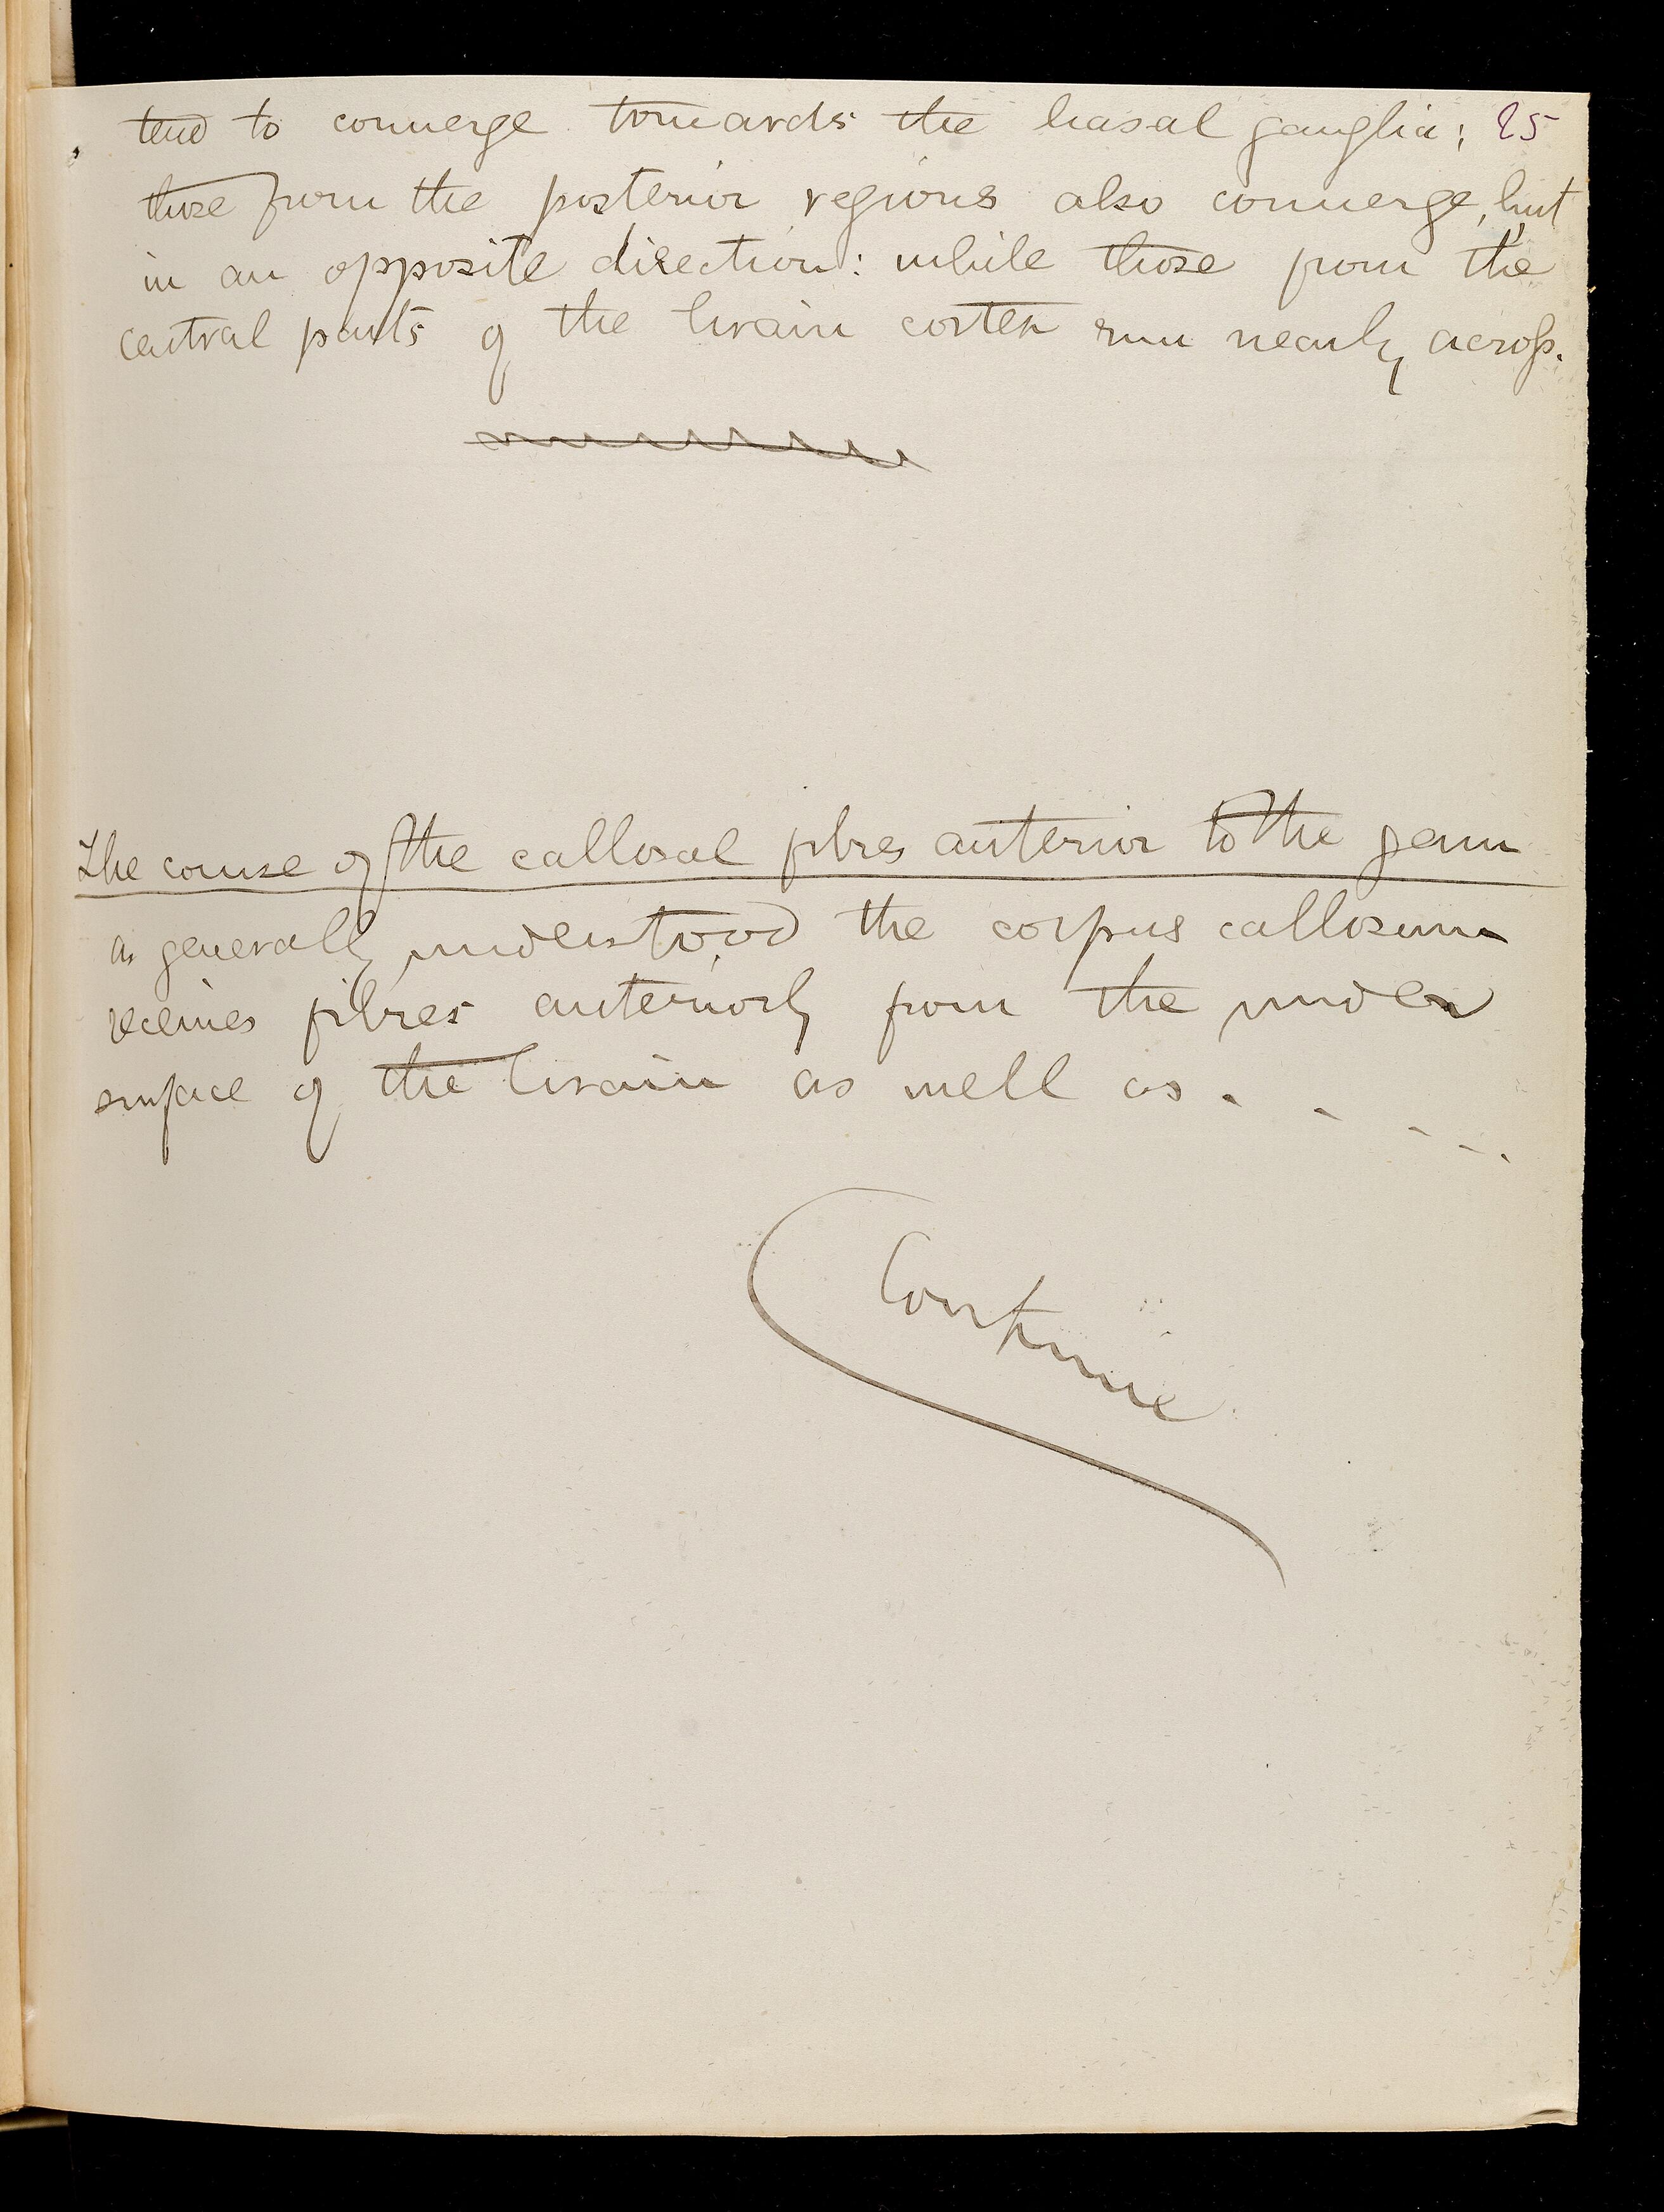 tend to converge towards the basal ganglia; 25
those from the posterior regions also converge, but
in an opposite direction: while those from the
central parts of the brain cortex run nearly across.
The course of the callosal fibres anterior to the genu
as generally understood the corpus callosum
receives fibres anteriorly from the under
surface of the brain as well as . - - - .
Continue